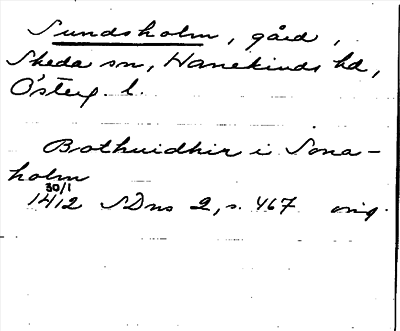 Sundsholm, gård,
Skeda sn, Hanekinds hd,
Österg. l.
Bothuidhir i Sona-
holm
30/1
1412 SDns 2, s. 467 orig.